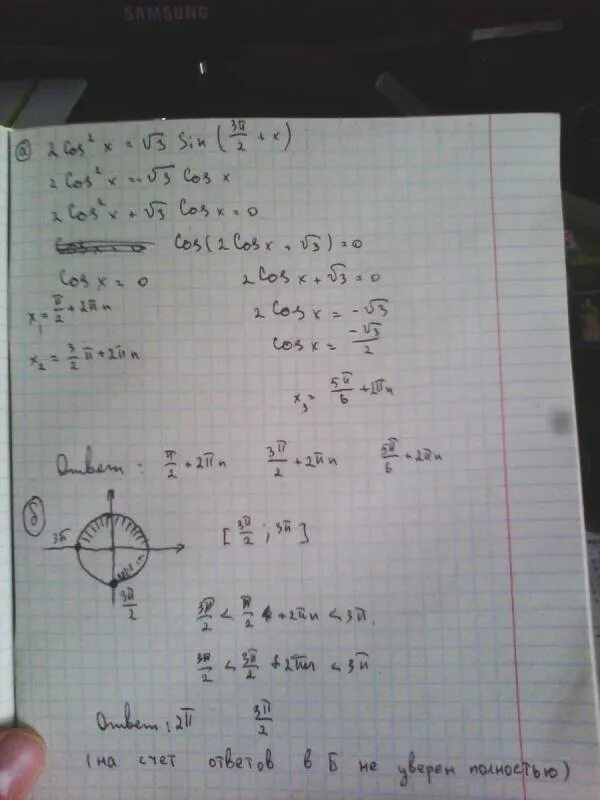 SAMSUNG
а) 2 Cos² x = √3 Sin (3π/2 + x)
2 Cos² x = -√3 Cos x
2 Cos² x + √3 Cos x = 0
Cos (2 Cos x + √3) = 0
Cos x = 0 2 Cos x + √3 = 0
x₁ = π/2 + 2πn 2 Cos x = -√3
x₂ = 3/2 π + 2πn Cos x = -√3/2
x₃ = 5π/6 + 2πn
Ответ: π/2 + 2πn 3π/2 + 2πn 5π/6 + 2πn
б) 3π [3π/2 ; 3π]
3π/2
3π/2 < π/2 + 2πn < 3π
3π/2 < 3π/2 + 2πn < 3π
Ответ: 2π 3π/2
(на счет ответов в Б не уверен полностью)